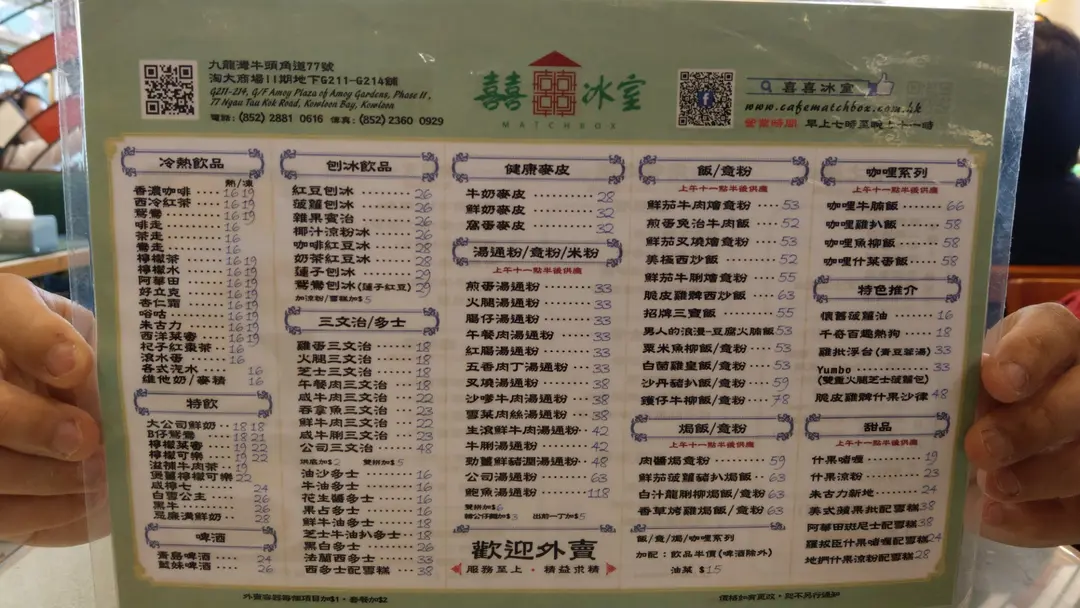 九龍灣牛頭角道77號
淘大商場II期地下G211-G214舖
G211-214, G/F Amoy Plaza of Amoy Gardens, Phase II,
77 Ngau Tau Kok Road, Kowloon Bay, Kowloon
電話: (852) 2881 0616 傳真: (852) 2360 0929
囍囍冰室
MATCHBOX
喜喜冰室
www.cafematchbox.com.hk
營業時間 早上七時至晚上十一時
冷熱飲品
熱/凍
香濃咖啡 16 19
西冷紅茶 16 19
鴛鴦 16 19
啡走 16
茶走 16
鴦走 16
檸檬茶 16 19
檸檬水 16 19
阿華田 16 19
好立克 16 19
杏仁霜 16 19
唂咕 16 19
朱古力 16 19
西洋菜蜜 16 19
杞子紅棗茶 16
滾水蛋 16
各式汽水 16
維他奶/麥精 16
特飲
大公司鮮奶 18 18
B仔鴛鴦 18 21
檸檬菜蜜 19 22
檸檬可樂 19 22
滋補牛肉茶 19
煲薑檸檬可樂 22
咸檸七 24
白雪公主 26
黑牛 26
忌廉溝鮮奶 28
啤酒
青島啤酒 24
藍妹啤酒 26
刨冰飲品
紅豆刨冰 26
菠蘿刨冰 26
雜果賓治 26
椰汁涼粉冰 26
咖啡紅豆冰 28
奶茶紅豆冰 28
蓮子刨冰 29
鴛鴦刨冰(蓮子紅豆) 29
加涼粉/雪糕加$5
三文治/多士
雞蛋三文治 18
火腿三文治 18
芝士三文治 18
午餐肉三文治 18
咸牛肉三文治 22
吞拿魚三文治 23
鮮牛肉三文治 22
咸牛脷三文治 23
公司三文治 48
烘底加$2 雙拼加$5
油沙多士 16
牛油多士 16
花生醬多士 16
果占多士 16
鮮牛油多士 18
芝士牛油扒多士 18
黑白多士 26
法蘭西多士 33
西多士配雪糕 38
健康麥皮
牛奶麥皮 28
鮮奶麥皮 32
窩蛋麥皮 32
湯通粉/意粉/米粉
上午十一點半後供應
煎蛋湯通粉 33
火腿湯通粉 33
腸仔湯通粉 33
午餐肉湯通粉 33
紅腸湯通粉 33
五香肉丁湯通粉 33
叉燒湯通粉 38
沙嗲牛肉湯通粉 38
雪菜肉絲湯通粉 38
生滾鮮牛肉湯通粉 42
牛脷湯通粉 42
勁薑鮮豬潤湯通粉 48
公司湯通粉 63
鮑魚湯通粉 118
雙拼加$6
轉公仔麵加$3 出前一丁加$5
歡迎外賣
服務至上・精益求精
飯/意粉
上午十一點半後供應
鮮茄牛肉燴意粉 53
煎蛋免治牛肉飯 52
鮮茄叉燒燴意粉 53
美極西炒飯 52
鮮茄牛脷燴意粉 55
脆皮雞髀西炒飯 63
招牌三寶飯 55
男人的浪漫-豆腐火腩飯 53
粟米魚柳飯/意粉 53
白菌雞皇飯/意粉 53
沙丹豬扒飯/意粉 59
鑊仔牛柳飯/意粉 78
焗飯/意粉
上午十一點半後供應
肉醬焗意粉 59
鮮茄菠蘿豬扒焗飯 63
白汁龍脷柳焗飯/意粉 63
香草烤雞焗飯/意粉 63
飯/意/焗/咖喱系列
加配：飲品半價(啤酒除外)
油菜 $15
咖喱系列
上午十一點半後供應
咖喱牛腩飯 66
咖喱雞扒飯 58
咖喱魚柳飯 58
咖喱什菜蛋飯 58
特色推介
懷舊菠蘿油 16
千奇百趣熱狗 18
雞批浮台(青豆蓉湯) 33
Yumbo 33
(雙重火腿芝士菠蘿包)
脆皮雞髀什果沙律 48
甜品
上午十一點半後供應
什果啫喱 19
什果涼粉 23
朱古力新地 24
美式蘋果批配雪糕 38
阿華田班尼士配雪糕 38
羅拔臣什果啫喱配雪糕 24
地捫什果涼粉配雪糕 28
外賣容器每個項目加$1，套餐加$2
價格如有更改，恕不另行通知